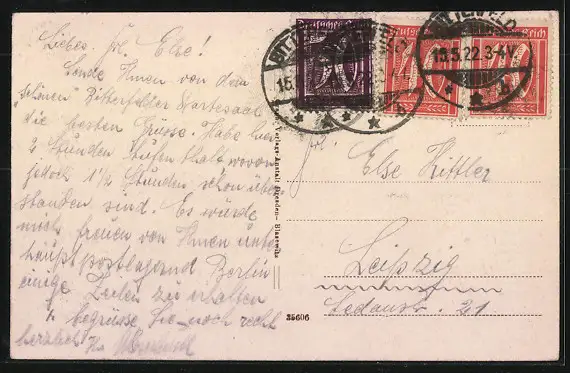 Liebes Frl. Else!
Sende Ihnen von dem
"schönen" Bitterfelder Wartesaal
die besten Grüsse. Habe hier
2 Stunden Aufenthalt wovon
jedoch 1½ Stunden schon über
standen sind. Es würde
mich freuen von Ihnen unter
postlagernd Berlin
einige Zeilen zu erhalten
u. begrüsse Sie noch recht
herzlich
Deutsches Reich
BITTERFELD
15.5.22.3-4V.
b
Verlags-Anstalt Dresden-Blasewitz
35606
Frl.
Else Kittler
Leipzig
Sedanstr. 21